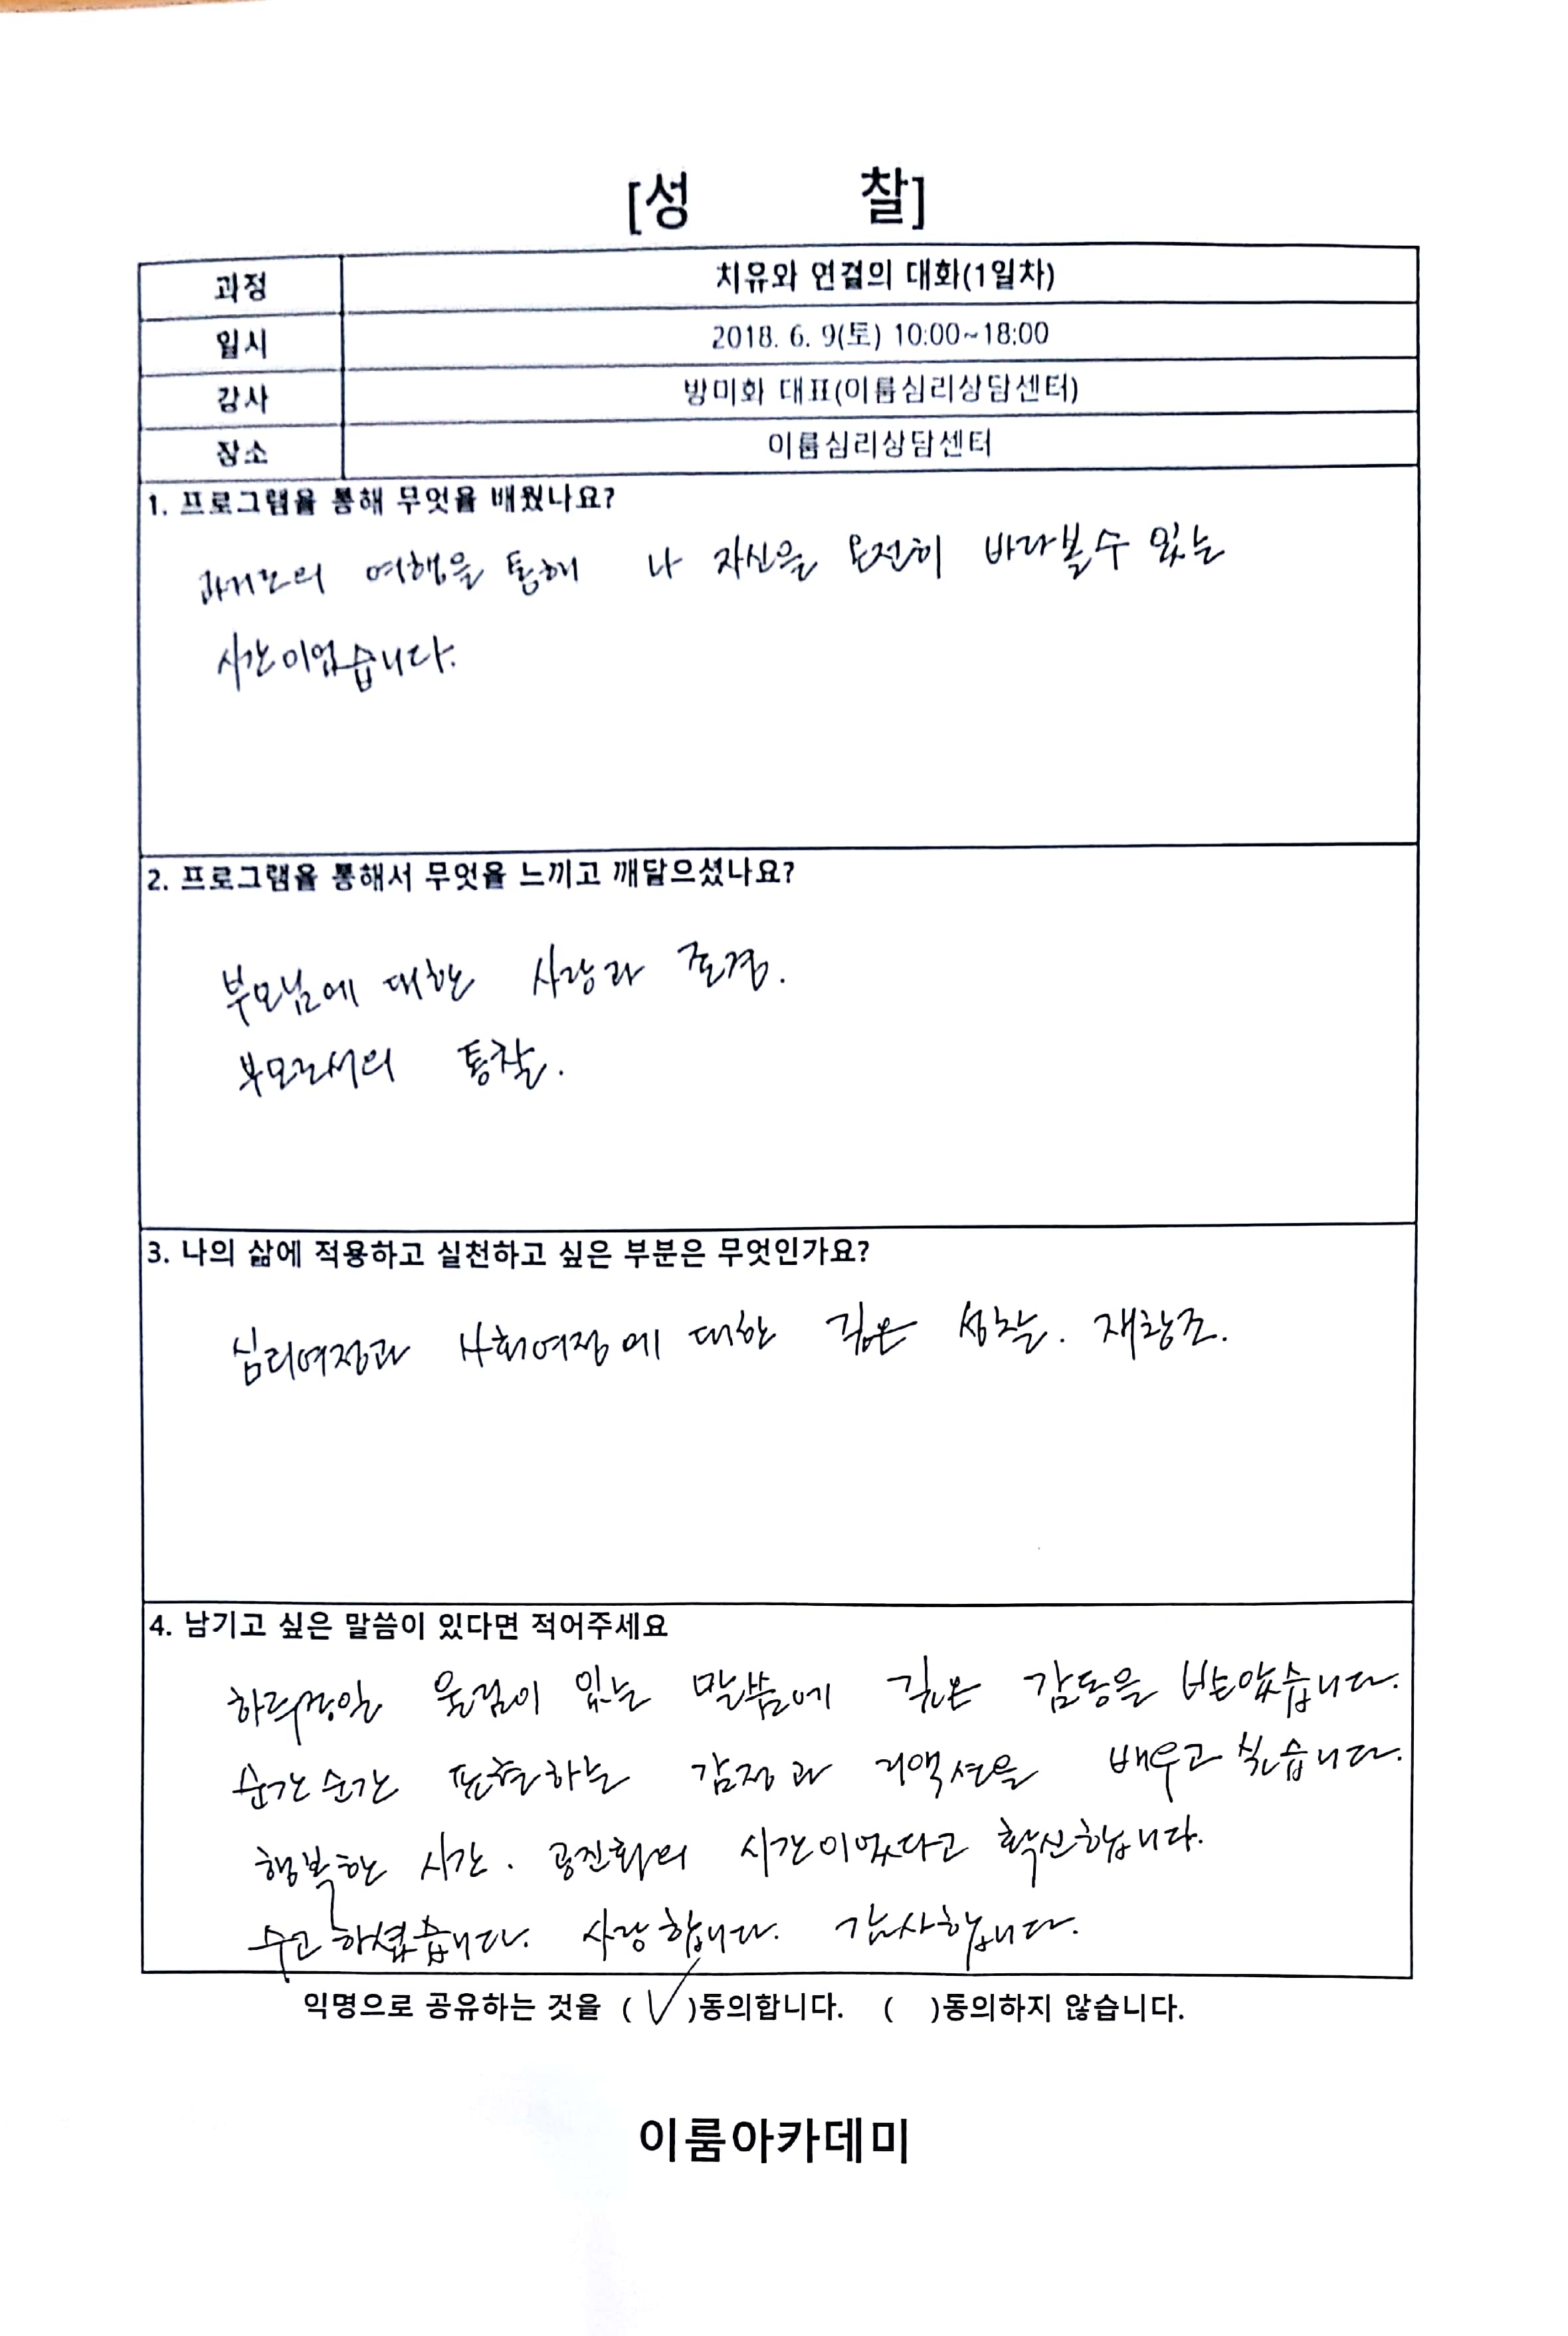 [성 찰]
과정 치유와 연결의 대화(1일차)
일시 2018. 6. 9(토) 10:00~18:00
강사 방미화 대표(이룸심리상담센터)
장소 이룸심리상담센터
1. 프로그램을 통해 무엇을 배웠나요?
과거로의 여행을 통해 나 자신을 온전히 바라볼수 있는
시간이었습니다.
2. 프로그램을 통해서 무엇을 느끼고 깨달으셨나요?
부모님에 대한 사랑과 존경.
부모로서의 통찰.
3. 나의 삶에 적용하고 실천하고 싶은 부분은 무엇인가요?
심리여정과 사회여정에 대한 깊은 성찰. 재창조.
4. 남기고 싶은 말씀이 있다면 적어주세요
하루종일 울림이 있는 말씀에 깊은 감동을 받았습니다.
순간순간 표현하는 감정과 리액션을 배우고 싶습니다.
행복한 시간. 공진화의 시간이었다고 확신합니다.
수고하셨습니다. 사랑합니다. 감사합니다.
익명으로 공유하는 것을 ( √ )동의합니다. ( )동의하지 않습니다.
이룸아카데미